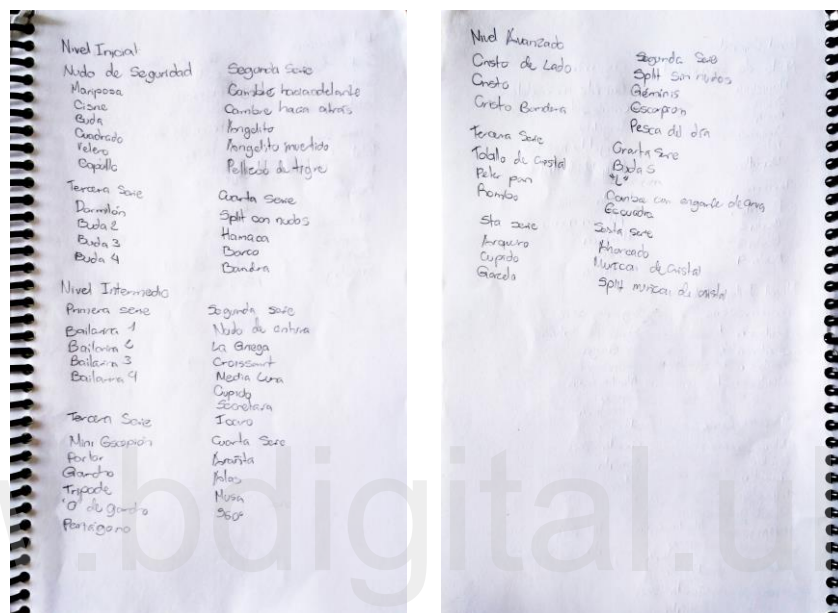 Nivel Inicial
Nudo de Seguridad
Mariposa
Cisne
Buda
Cuadrado
Velero
Capullo
Segunda Serie
Cambre hacia delante
Cambre hacia atrás
Angelito
Angelito invertido
Pellizco de tigre
Tercera Serie
Dormilón
Buda 2
Buda 3
Buda 4
Cuarta Serie
Split con nudos
Hamaca
Barco
Bandera
Nivel Intermedio
Primera serie
Bailarina 1
Bailarina
Bailarina 3
Bailarina 4
Segunda serie
Nudo de cintura
La Griega
Croissant
Media Luna
Cupido
Secretaria
Icaro
Tercera Serie
Mini Escorpión
Gancho
Trípode
"O" de gancho
Pentágono
Cuarta Serie
Arañita
Alas
Musa
360°
Nivel Avanzado
Cristo de Lado
Cristo
Cristo Bandera
Segunda Serie
Split sin nudos
Géminis
Escorpion
Pesca del día
Tercera Serie
de Cristal
Peter pan
Rombo
Cuarta Serie
Buda 5
"L"
Cambre con enganche de
Escuadra
5ta serie
Arquero
Cupido
Gacela
Sexta serie
Ahorcado
de Cristal
Split de cristal
.bdigital.u